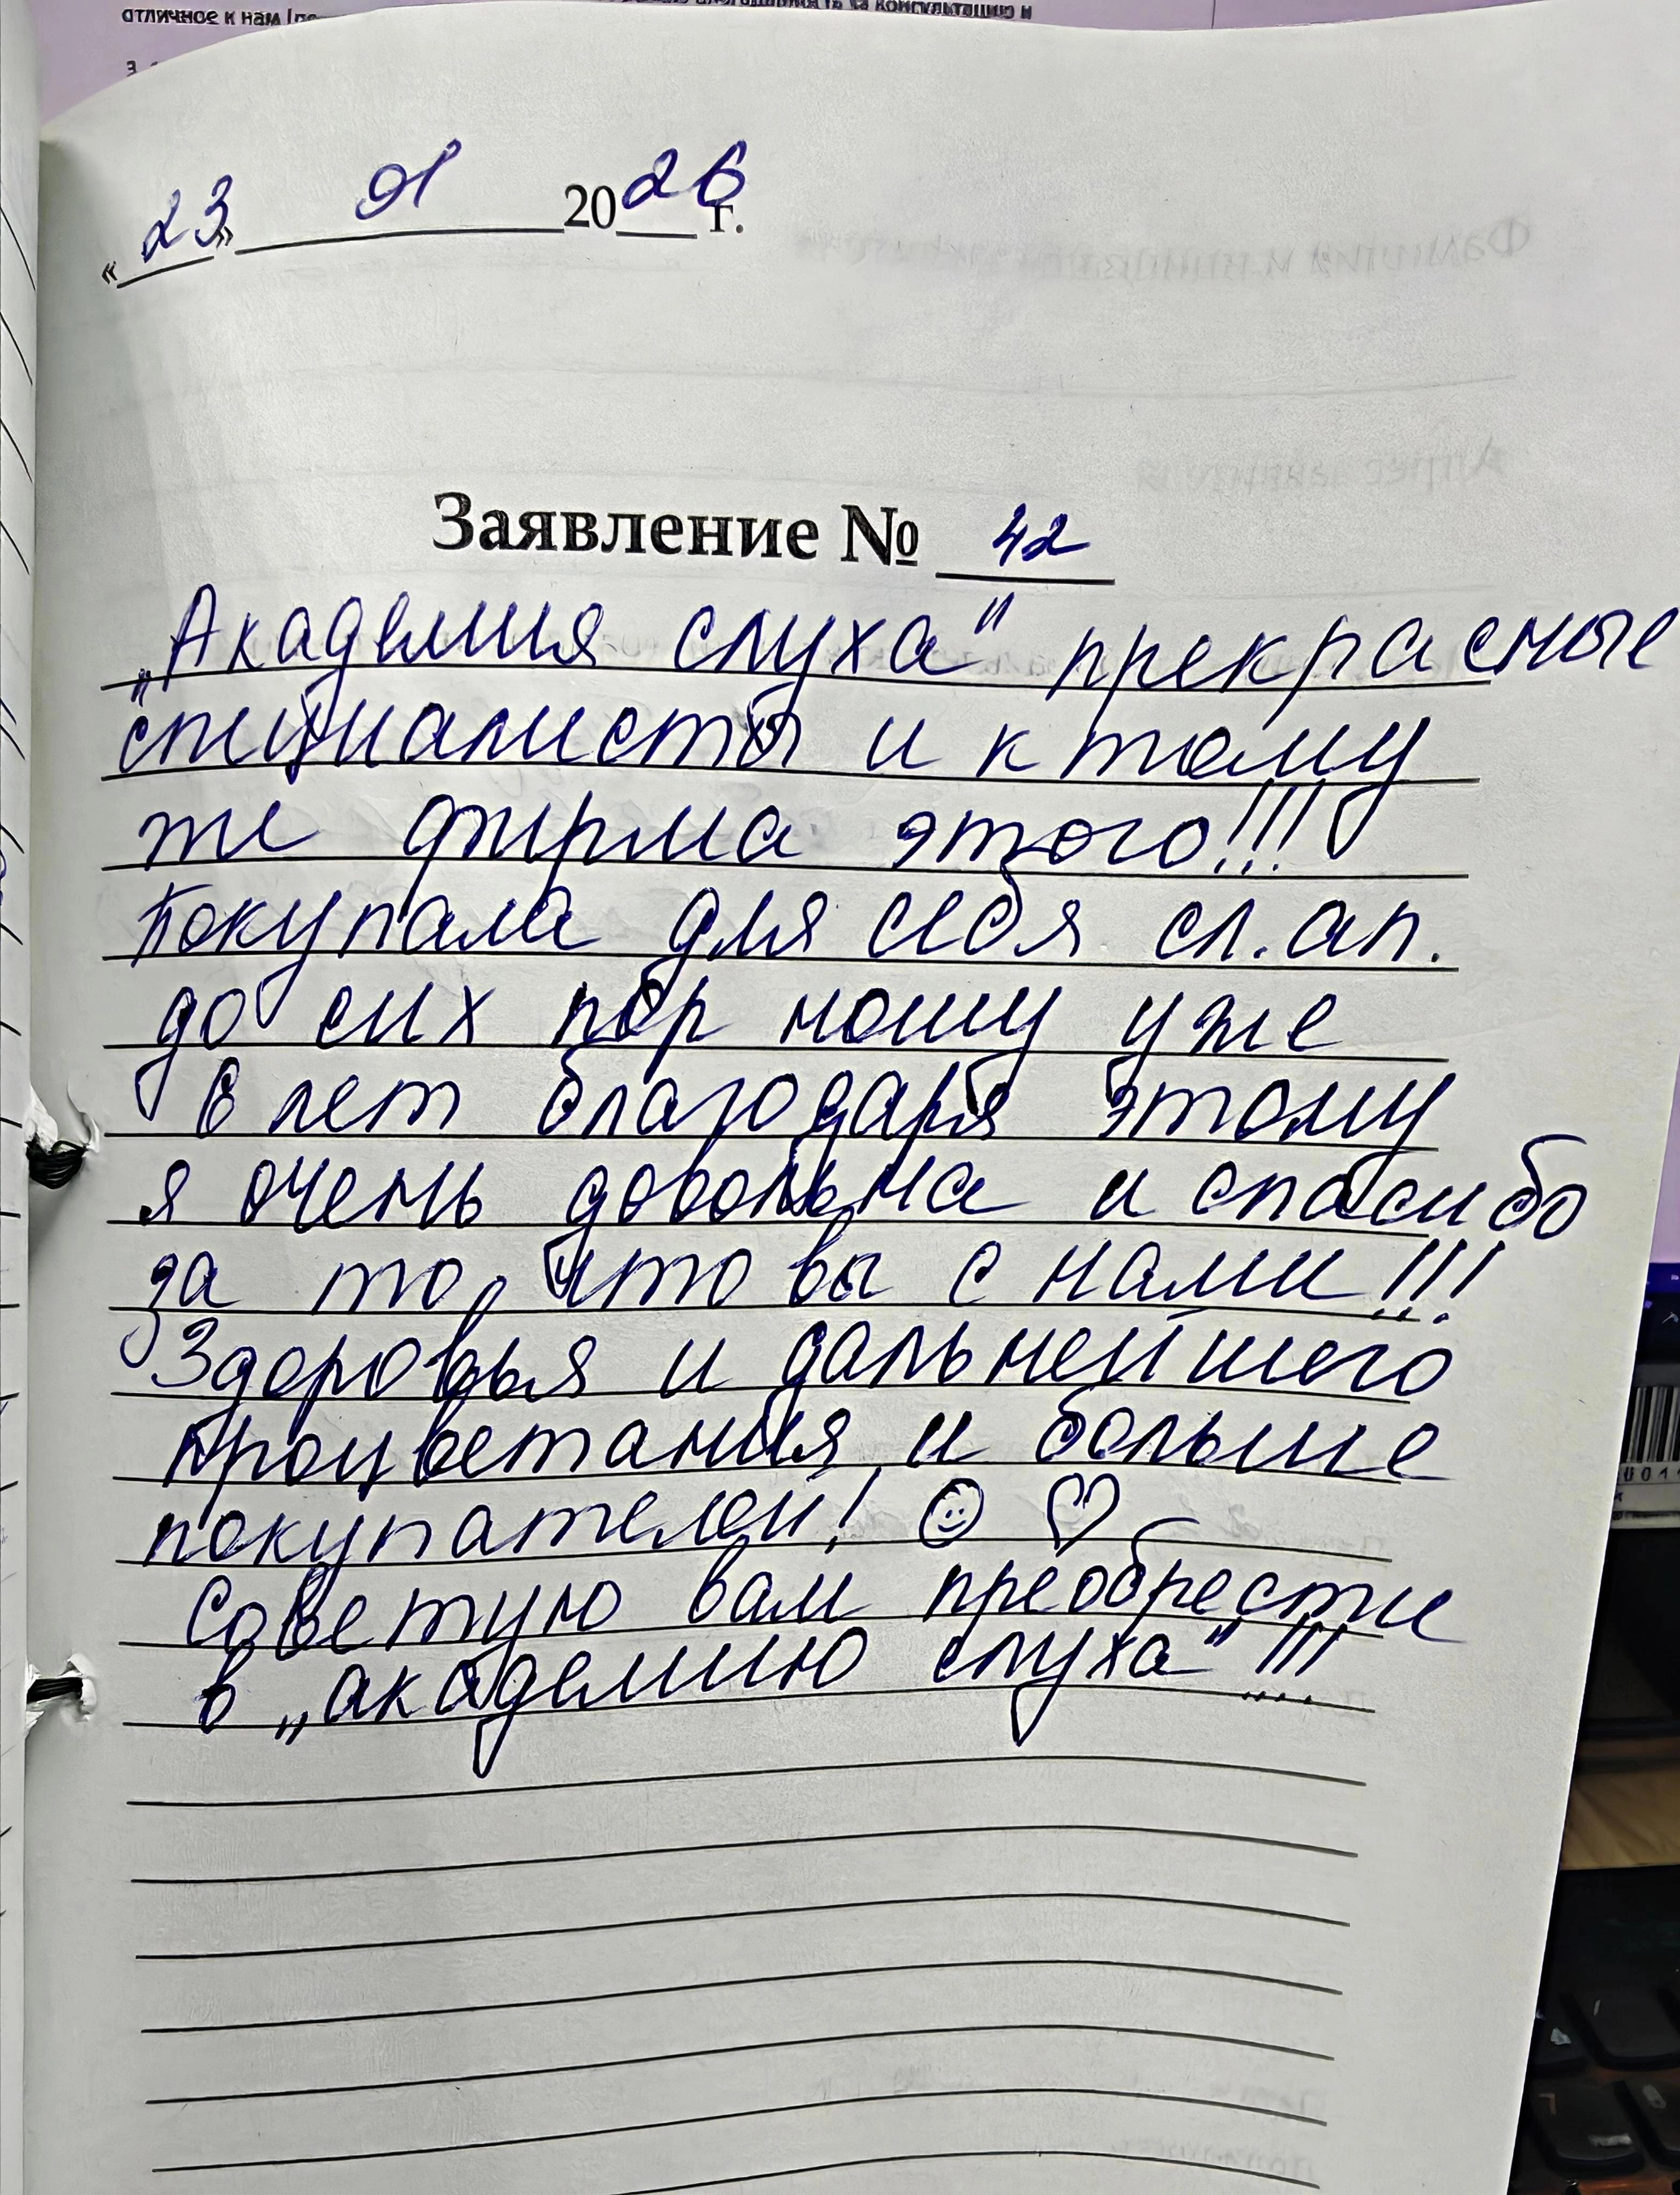 отличное к нам
«23» 01 2026 г.
Заявление № 42
„Академия слуха" прекрасные
специалисты и к тому
же фирма этого!!!
Покупала для себя сл. ап.
до сих пор ношу уже
6 лет благодаря этому
я очень довольна и спасибо
за то, что вы с нами!!!
Здоровья и дальнейшего
процветания и больше
покупателей! ☺ ♡
Советую вам преобрести
в „академию слуха"!!!